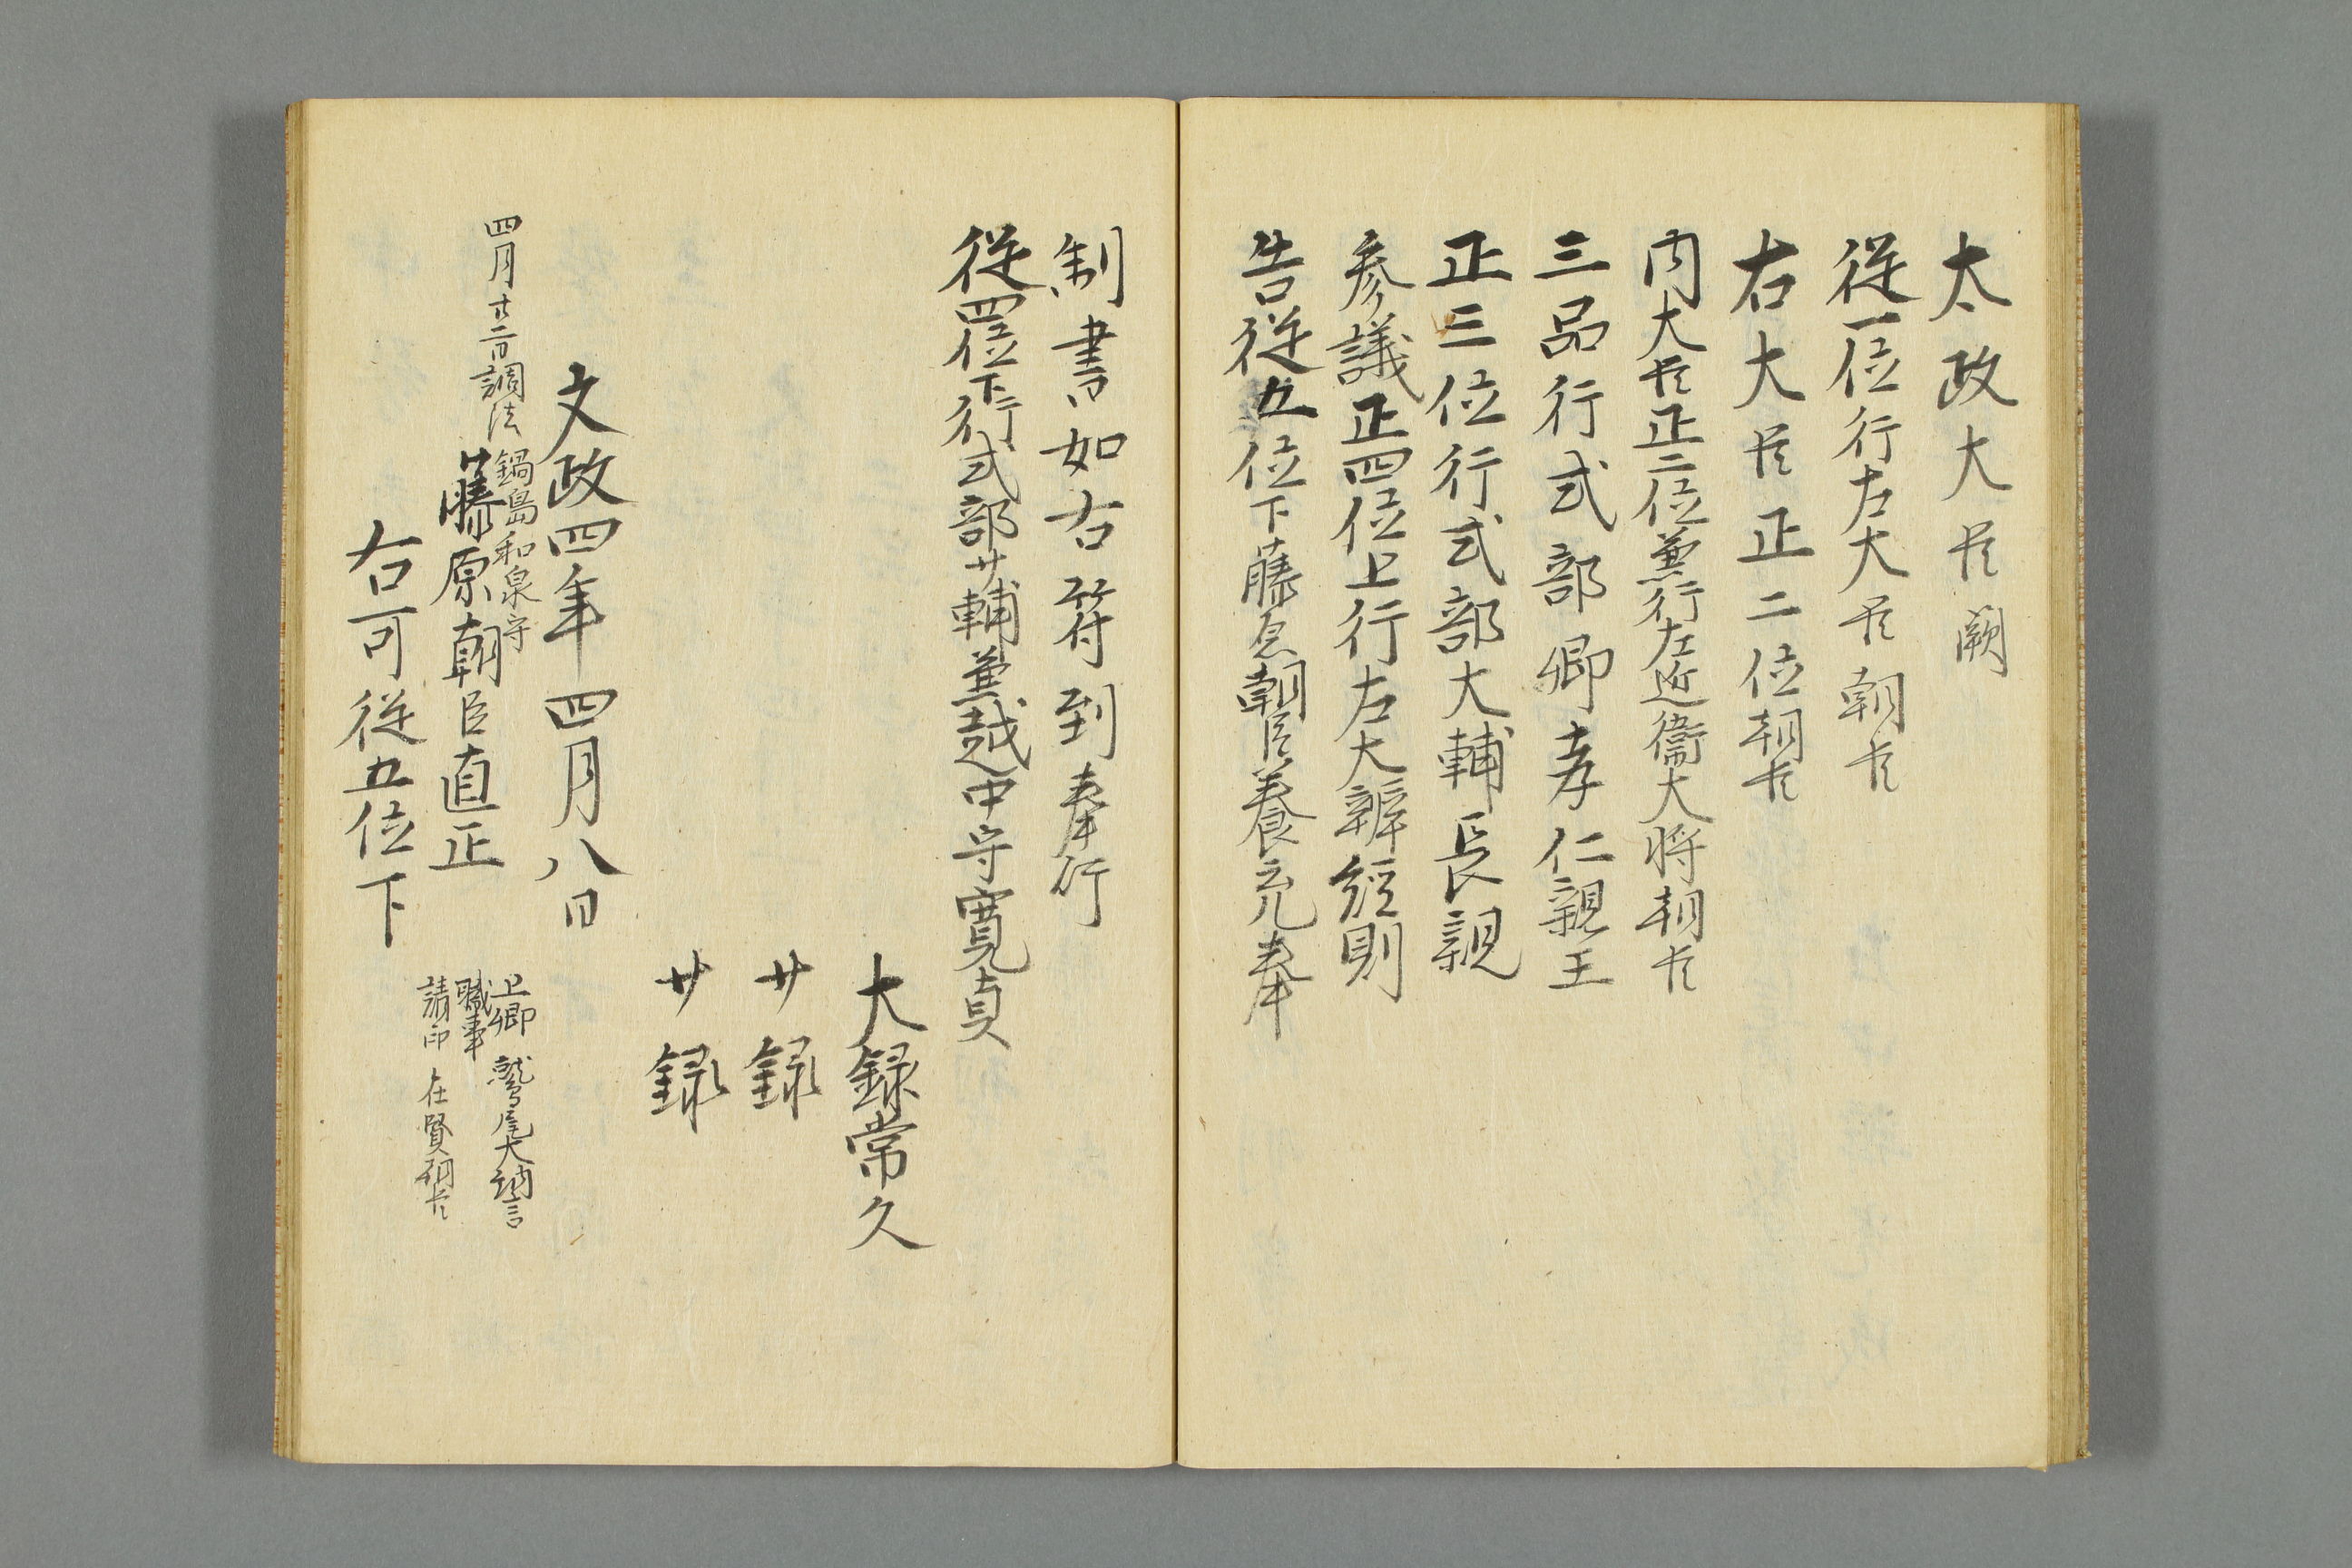 太政大臣 闕
従一位行左大臣朝臣
右大臣正二位朝臣
内大臣正二位兼行左近衛大将朝臣
三品行式部卿孝仁親王
正三位行式部大輔長親
参議正四位上行左大辨経則
告従五位下藤原朝臣養元奉
制書如右符到奉行
従四位下行式部少輔兼越中守寛貞
大録常久
少録
少録
文政四年四月八日
四月 調法
鍋島和泉守
藤原朝臣直正
右可従五位下
上卿 鷲尾大納言
職事
請印 在賢朝臣